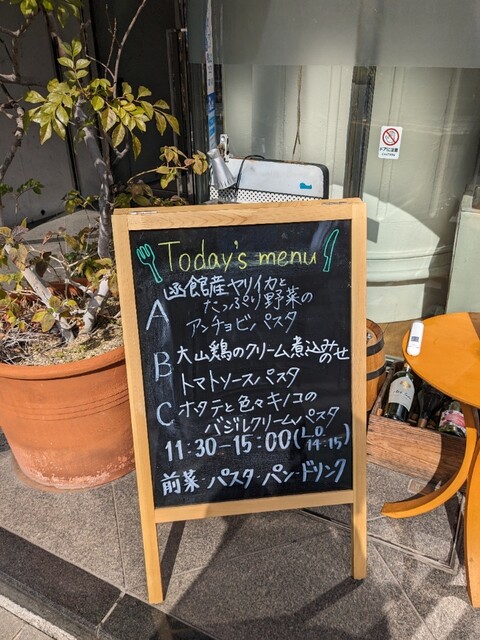 Today's menu
A 函館産ヤリイカと
たっぷり野菜の
アンチョビパスタ
B 大山鶏のクリーム煮込みのせ
トマトソースパスタ
C ホタテと色々キノコの
バジルクリームパスタ
11:30-15:00(L.O 14:15)
前菜・パスタ・パン・ドリンク